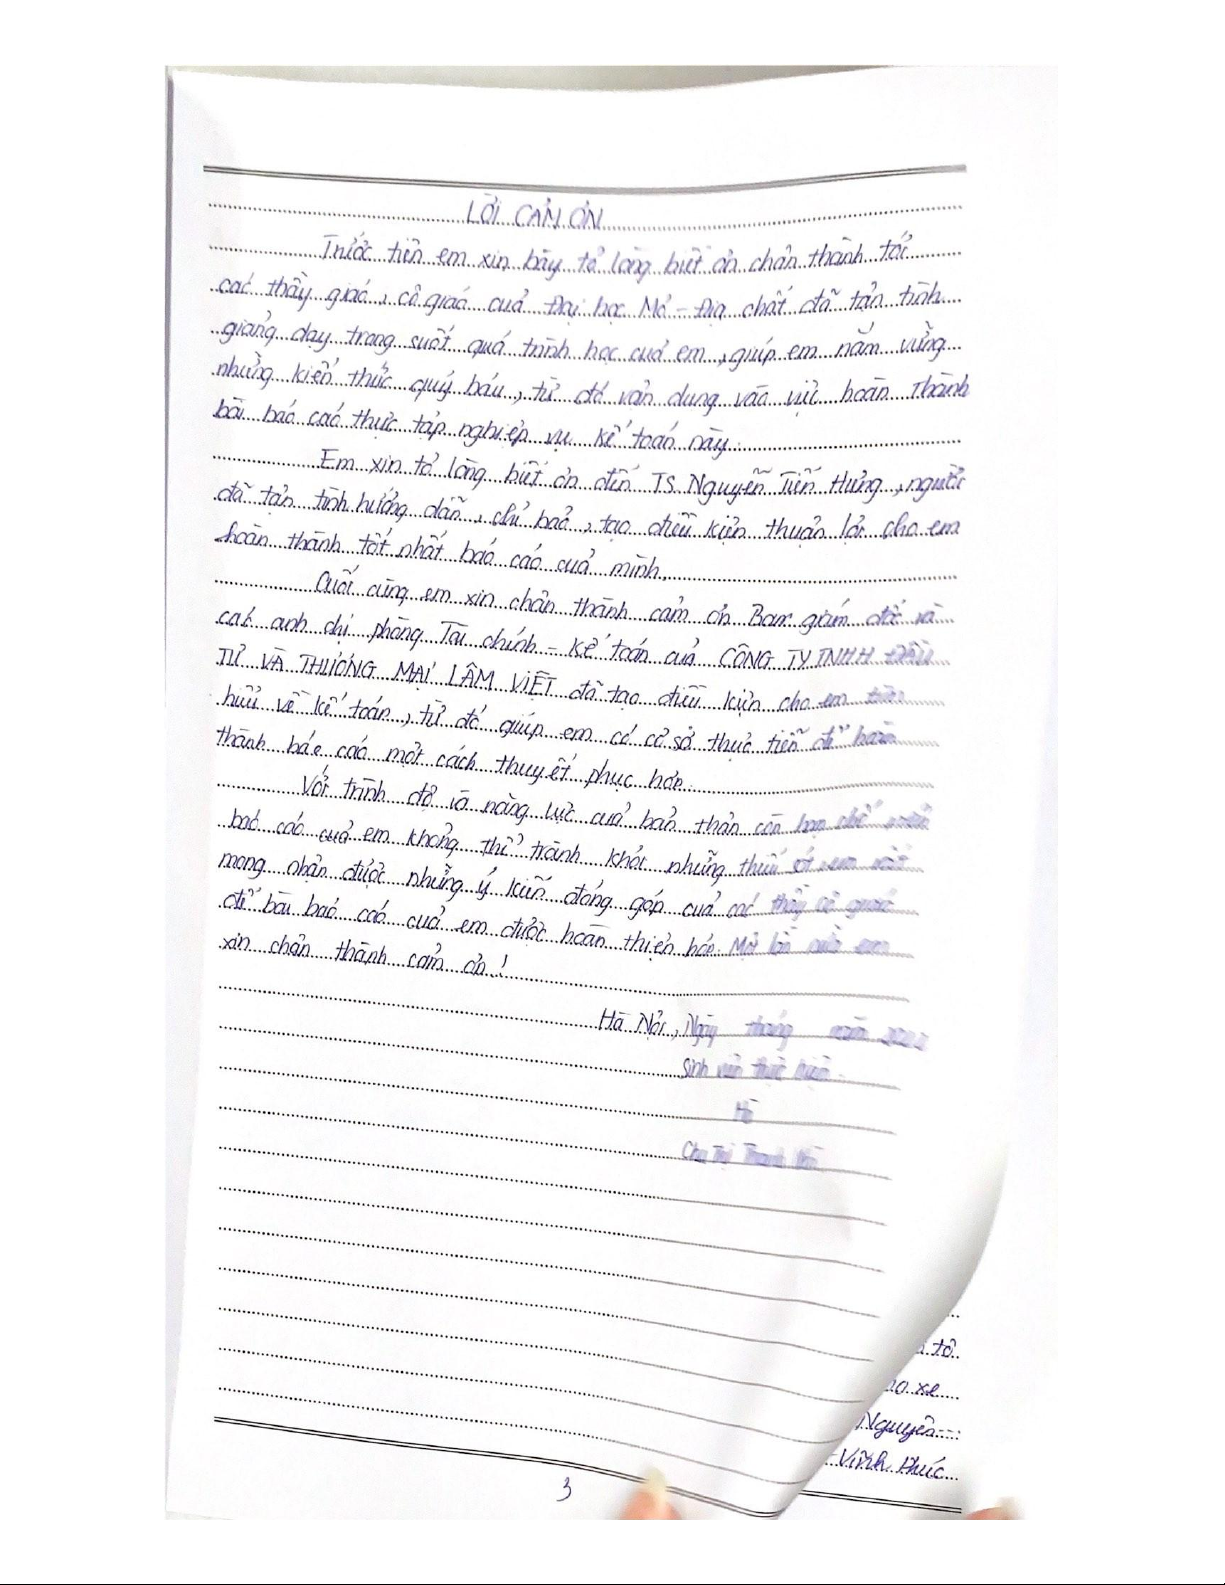 LỜI CẢM ƠN
Trước tiên em xin bày tỏ lòng biết ơn chân thành tới
các thầy giáo, cô giáo của Đại học Mỏ - Địa chất đã tận tình
giảng dạy trong suốt quá trình học của em, giúp em nắm vững
những kiến thức quý báu, từ đó vận dụng vào việc hoàn thành
bài báo cáo thực tập nghiệp vụ kế toán này.
Em xin tỏ lòng biết ơn đến TS. Nguyễn Tiến Hưng, người
đã tận tình hướng dẫn, chỉ bảo, tạo điều kiện thuận lợi cho em
hoàn thành tốt nhất báo cáo của mình.
Cuối cùng em xin chân thành cảm ơn Ban giám đốc và
các anh chị phòng Tài chính - Kế toán của CÔNG TY TNHH ĐẦU
TƯ VÀ THƯƠNG MẠI LÂM VIỆT đã tạo điều kiện cho em tìm
hiểu về kế toán, từ đó giúp em có cơ sở thực tiễn để hoàn
thành báo cáo một cách thuyết phục hơn.
Với trình độ và năng lực của bản thân còn hạn chế
báo cáo của em không thể tránh khỏi những thiếu sót, em
mong nhận được những ý kiến đóng góp của các thầy cô giáo
để bài báo cáo của em được hoàn thiện hơn. Một lần nữa em
xin chân thành cảm ơn!
Hà Nội, Ngày tháng năm
Sinh viên thực hiện
Chu Thị Thanh
tô
xe
Nguyên
- Vĩnh Phúc
3